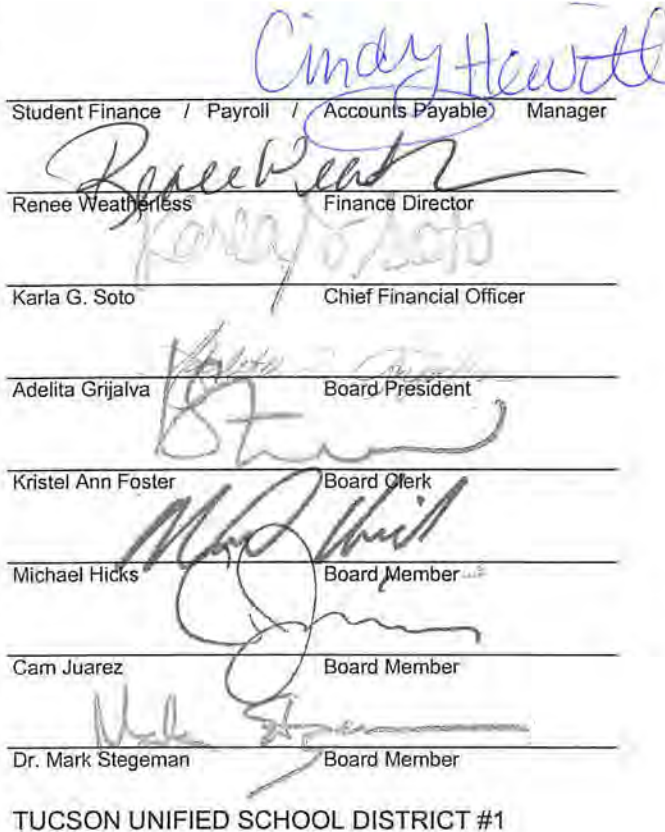 Cindy Hewitt
Student Finance / Payroll / Accounts Payable Manager
Renee Weath
Renee Weatherless Finance Director
Karla G Soto
Karla G. Soto Chief Financial Officer
Adelita Grijalva Board President
Kristel Ann Foster Board Clerk
Michael Hicks Board Member
Cam Juarez Board Member
Mark
Dr. Mark Stegeman Board Member
TUCSON UNIFIED SCHOOL DISTRICT #1